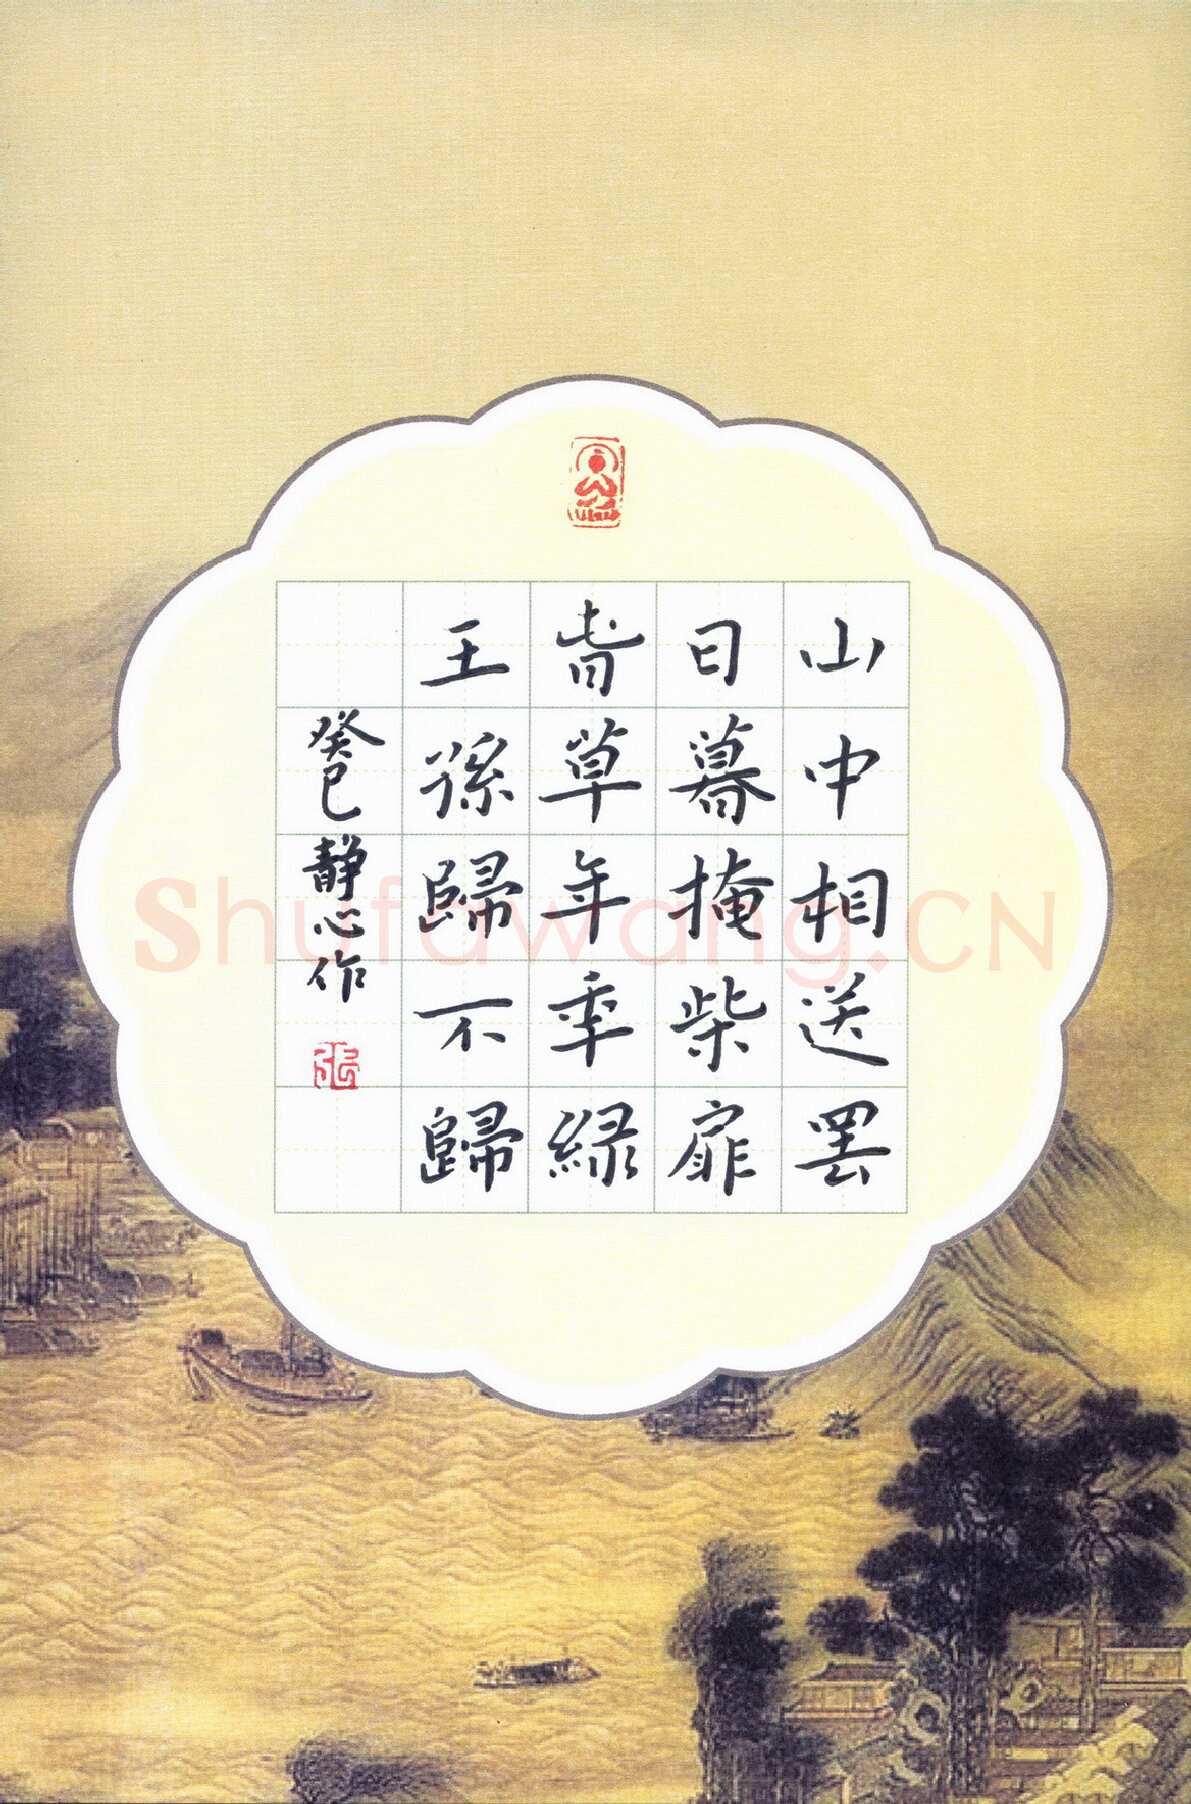 山中相送罢
日暮掩柴扉
春草年年緑
王孫歸不歸
癸巳靜心作
张
Shufawang.CN